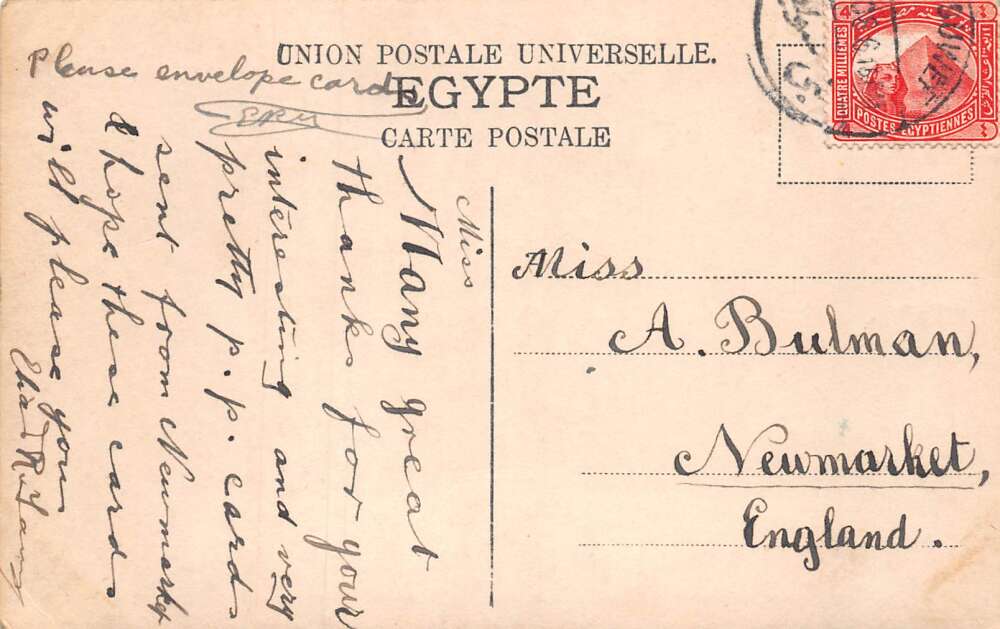 UNION POSTALE UNIVERSELLE.
EGYPTE
CARTE POSTALE
Please envelope cards
QUATRE MILLIÈMES
POSTES EGYPTIENNES
4
4
Miss
Many great
thanks for your
interesting and very
pretty p.p. cards
sent from Newmarket
& hope these cards
will please you
Miss
A. Bulman,
Newmarket,
England.